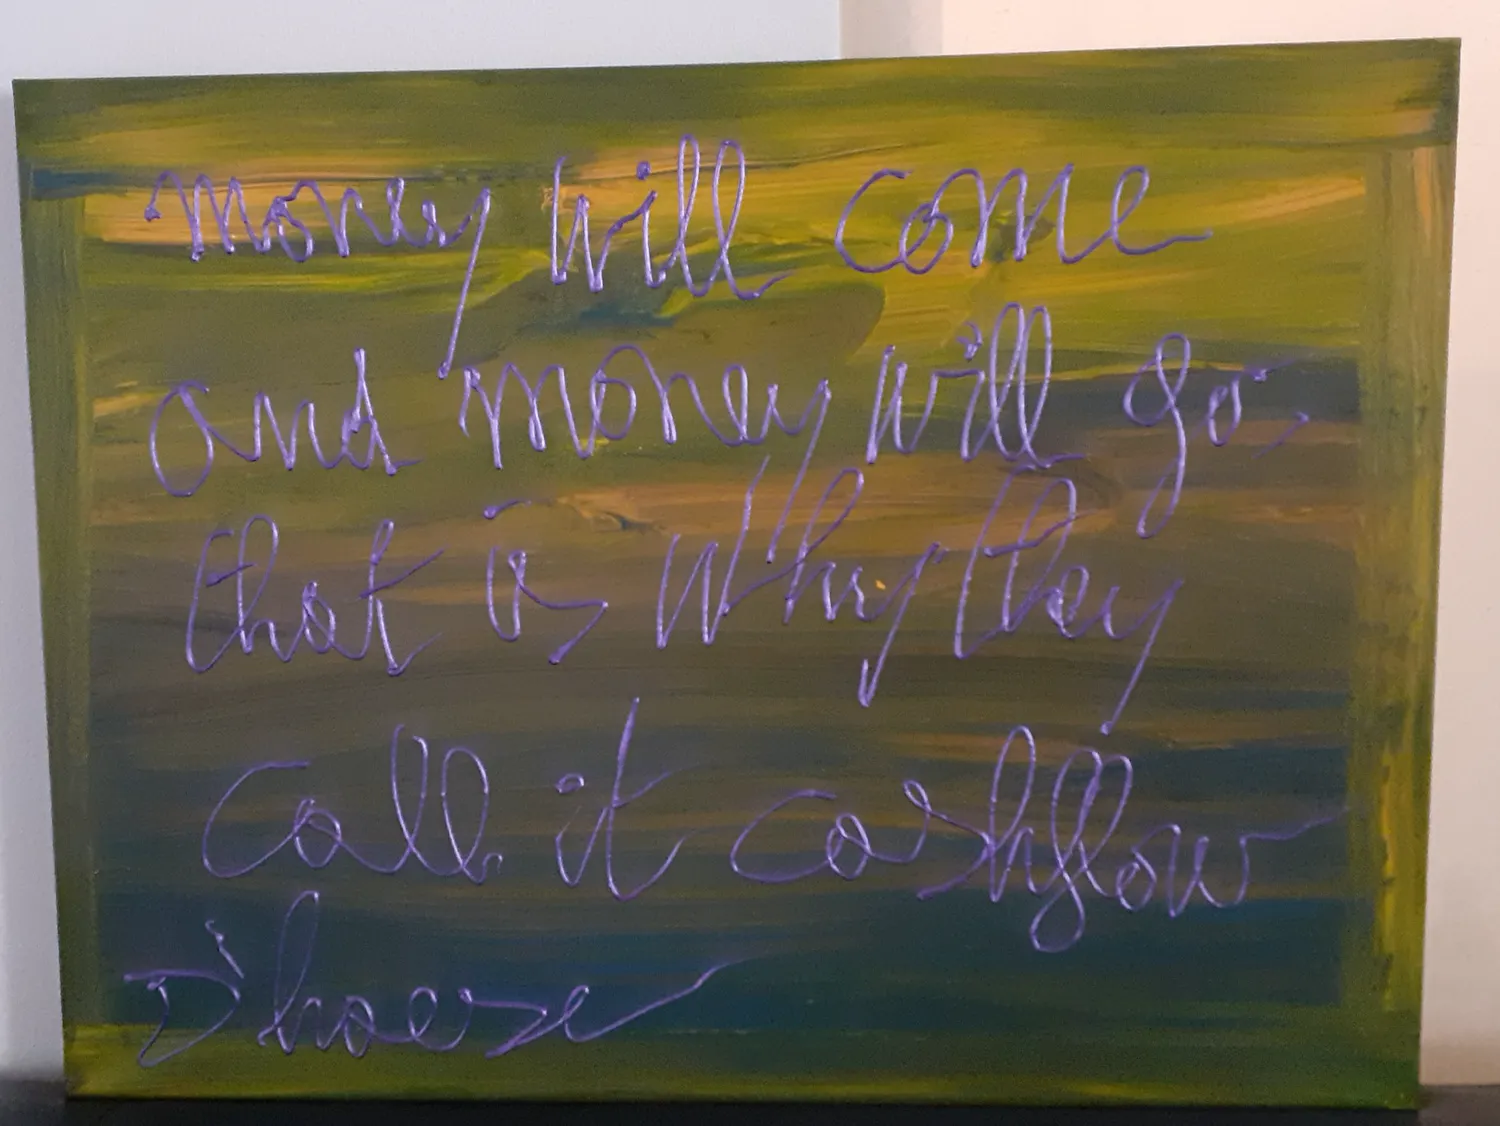 money will come
and money will go,
that is why they
call it cashflow
D'haese